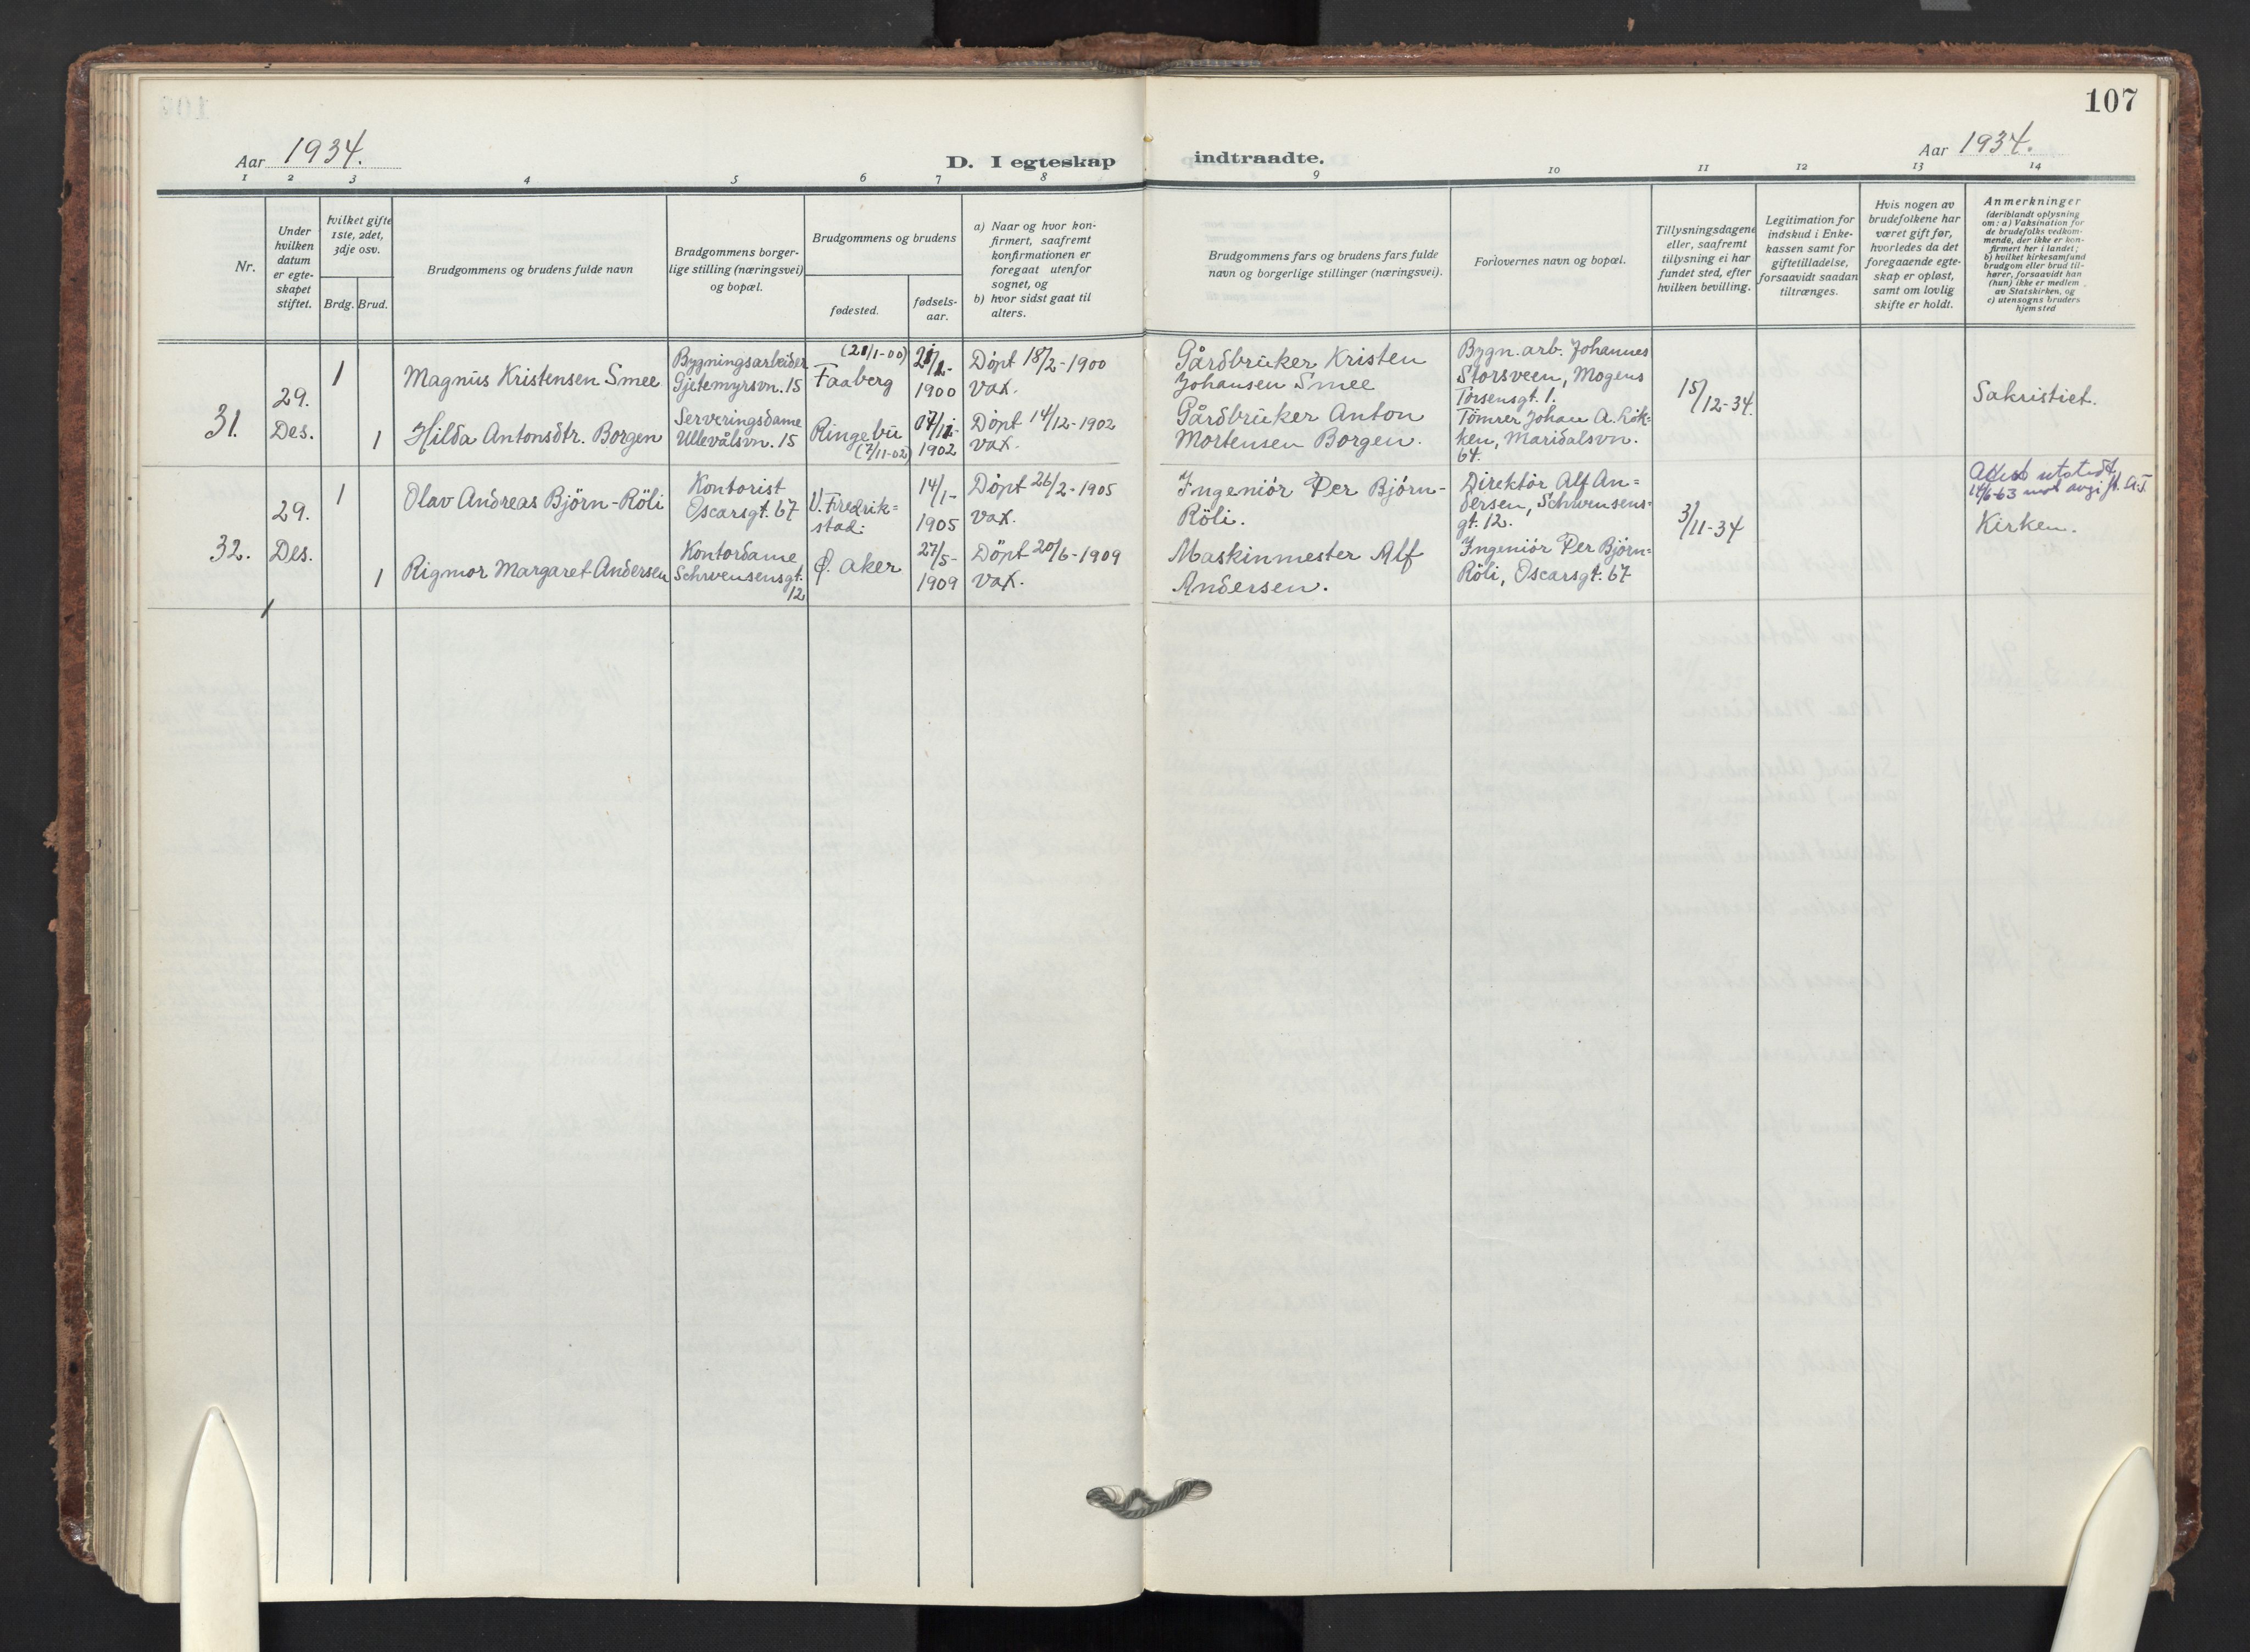 107
Aar 1934.
D. I egteskap indtraadte.
Aar 1934.
1 2 3 4 5 6 7 8 9 10 11 12 13 14
Nr.
Under
hvilken
datum
er egte-
skapet
stiftet.
hvilket gifte
1ste, 2det,
3dje osv.
Brdg. Brud.
Brudgommens og brudens fulde navn
Brudgommens borger-
lige stilling (næringsvei)
og bopæl.
Brudgommens og brudens
fødested.
fødsels-
aar.
a) Naar og hvor kon-
firmert, saafremt
konfirmationen er
foregaat utenfor
sognet, og
b) hvor sidst gaat til
alters.
Brudgommens fars og brudens fars fulde
navn og borgerlige stillinger (næringsvei).
Forlovernes navn og bopæl.
Tillysningsdagene
eller, saafremt
tillysning ei har
fundet sted, efter
hvilken bevilling.
Legitimation for
indskud i Enke-
kassen samt for
giftetilladelse,
forsaavidt saadan
tiltrænges.
Hvis nogen av
brudefolkene har
været gift før,
hvorledes da det
foregaaende egte-
skap er opløst,
samt om lovlig
skifte er holdt.
Anmerkninger
(deriblandt oplysning
om: a) Vaksination for
de brudefolks vedkom-
mende, der ikke er kon-
firmert her i landet;
b) hvilket kirkesamfund
brudgom eller brud til-
hører, forsaavidt han
(hun) ikke er medlem
av Statskirken, og
c) utensogns bruders
hjemsted
31.
29.
Des.
1
Magnus Kristensen Smee
Bygningsarbeider
Gjetemyrsvn. 15
(21/1-00)
Faaberg
21/1-
1900
Döpt 18/2-1900
vax.
Gårdbruker Kristen
Johansen Smee
Bygn. arb. Johannes
Storsveen, Mogens
Torsensgt. 1.
15/12-34.
Sakristiet.
1
Hilda Antonsdtr. Borgen
Serveringsdame
Ullevålsvn. 15
Ringebu
(7/11-02)
07/11-
1902
Döpt 14/12-1902
vax.
Gårdbruker Anton
Mortensen Borgen.
Tömrer Johan A. Lök-
ken, Maridalsvn.
64.
32.
29.
Des.
1
Olav Andreas Björn-Röli
Kontorist
Oscarsgt. 67
V. Fredrik=
stad.
14/1-
1905
Döpt 26/2-1905
vax.
Ingeniör Per Björn-
Röli.
Direktör Alf An=
dersen, Schwensens-
gt. 12.
3/11-34
Attest utstedt
14/6-63 mot avgift. A.J.
Kirken.
1
Rigmor Margaret Andersen
Kontordame
Schwensensgt.
12
Ø. Aker
27/5-
1909
Döpt 20/6-1909
vax.
Maskinmester Alf
Andersen.
Ingeniör Per Björn=
Röli, Oscarsgt. 67